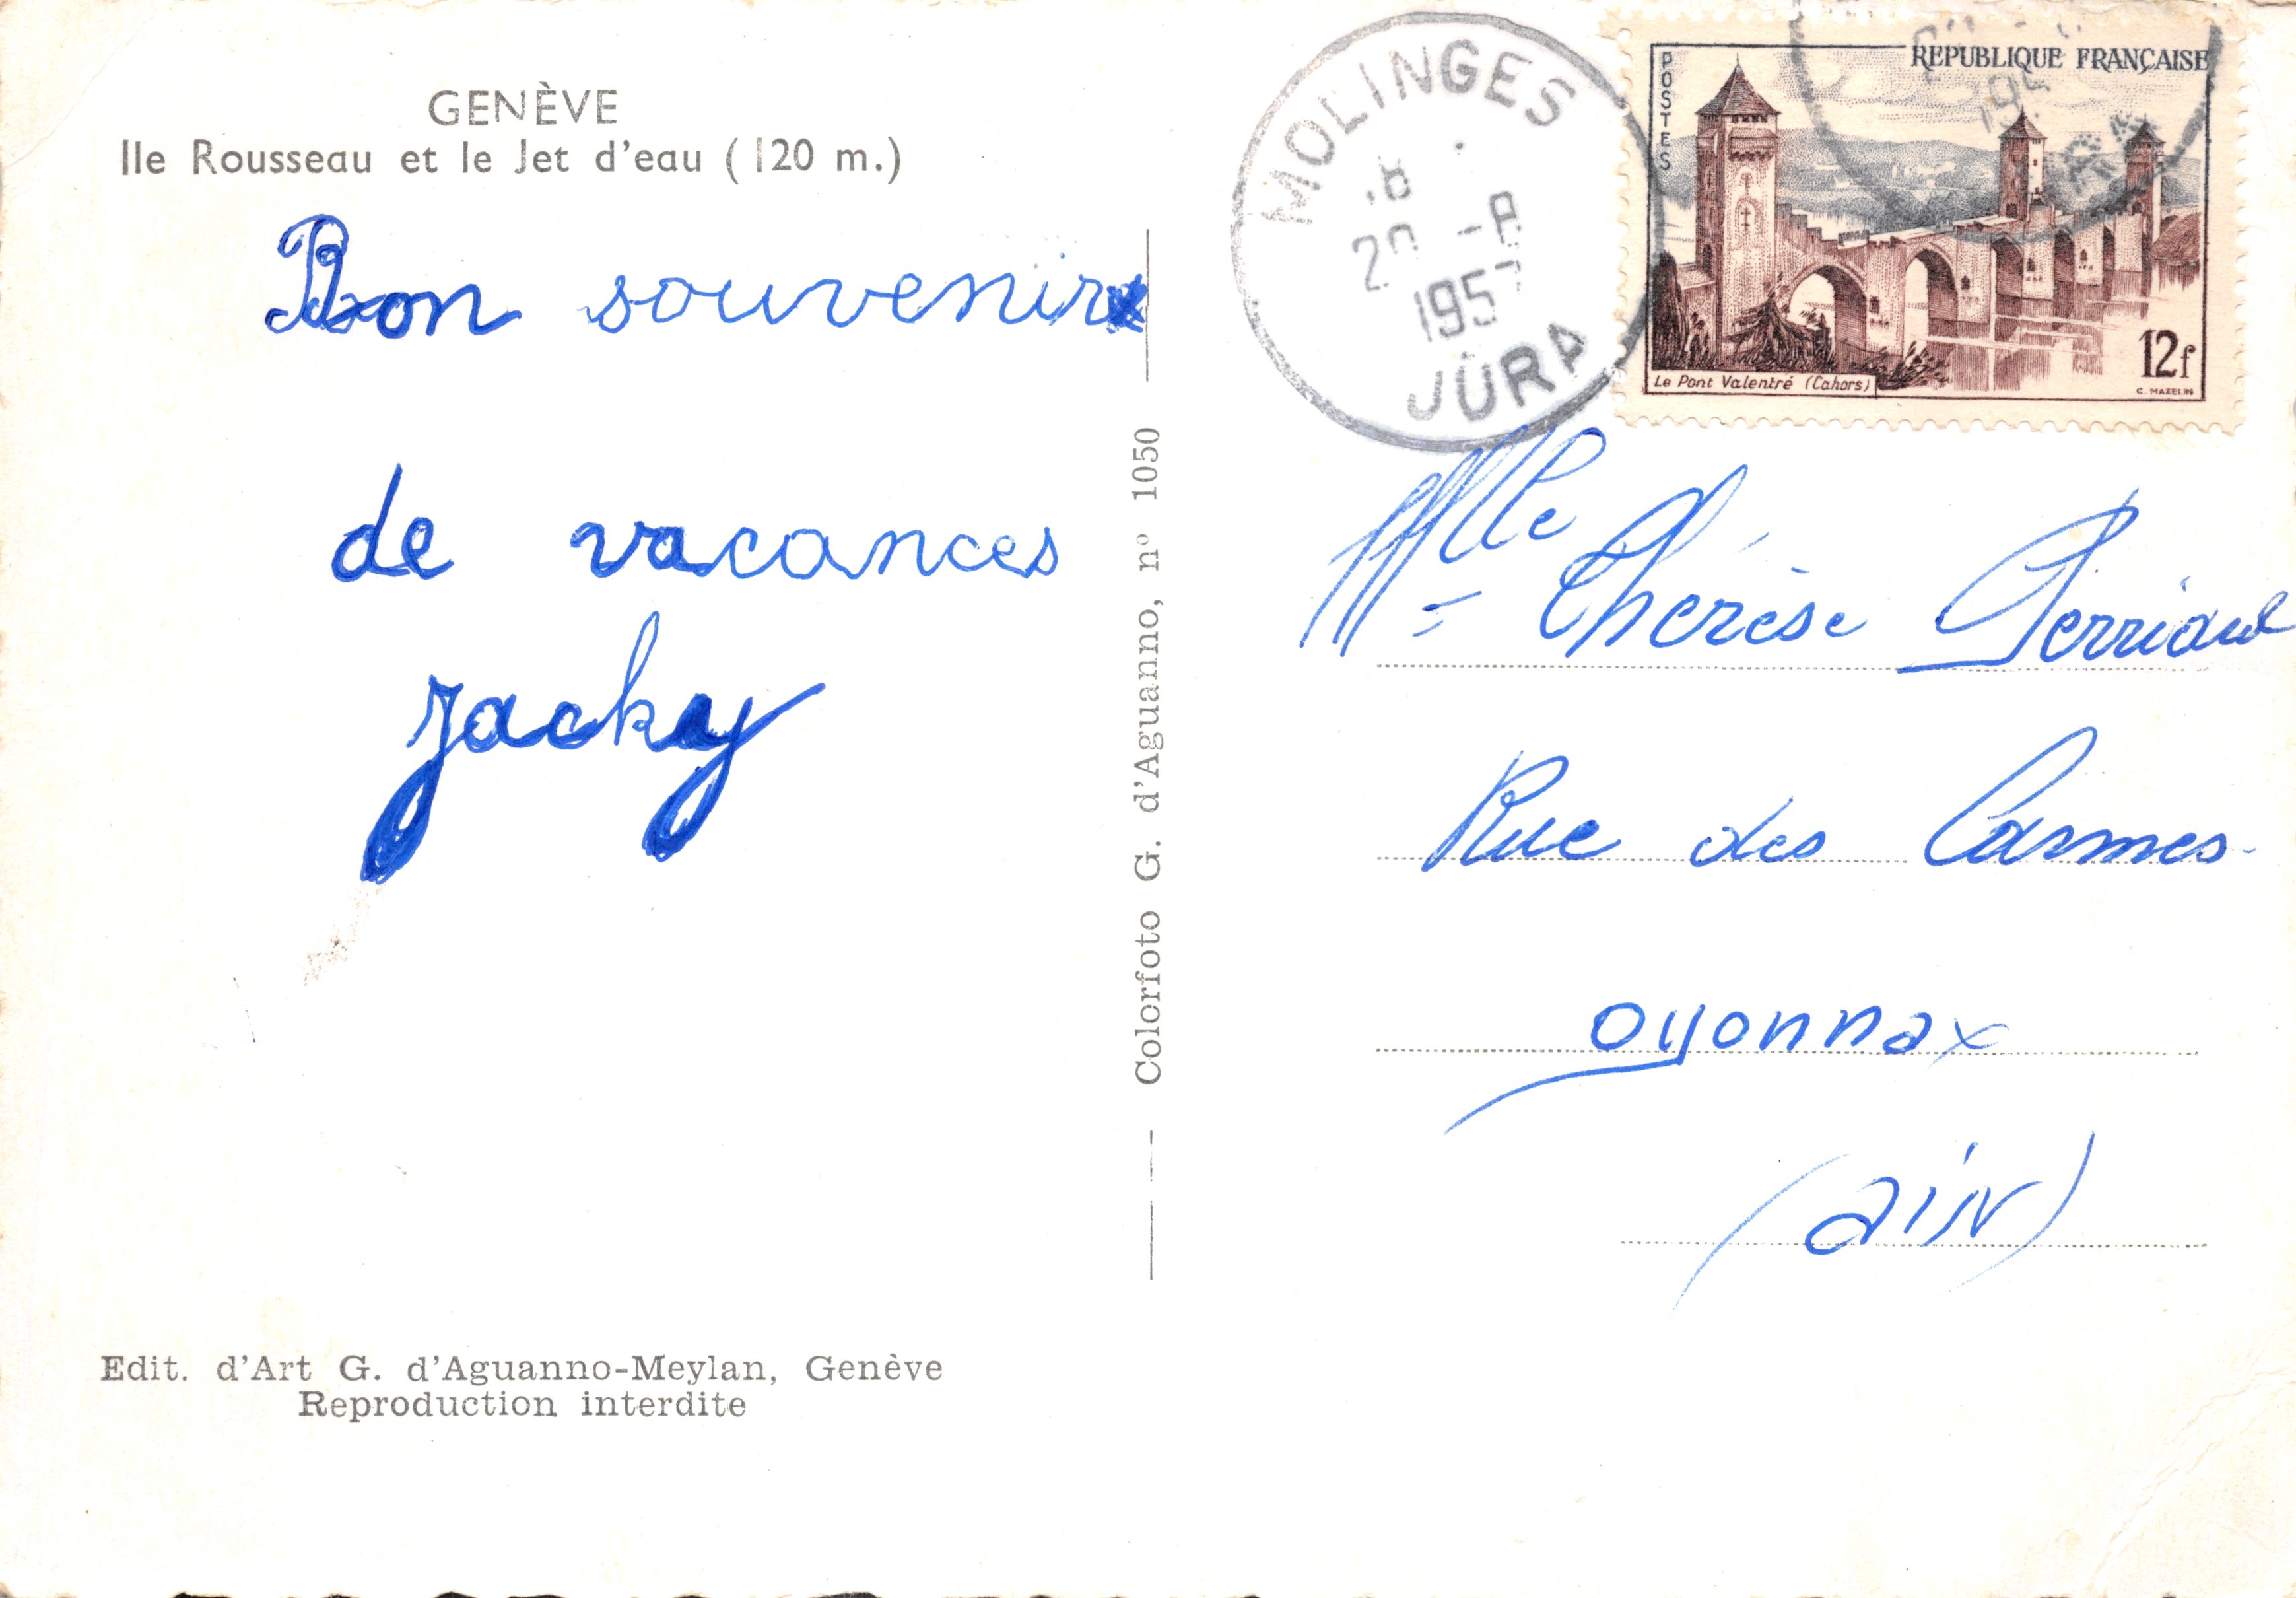 GENÈVE
Ile Rousseau et le Jet d'eau (120 m.)
Bon souvenir
de vacances
Jacky
Edit. d'Art G. d'Aguanno-Meylan, Genève
Reproduction interdite
Colorfoto G. d'Aguanno, n° 1050
MOLINGES
18
20 -8
1957
JURA
POSTES
REPUBLIQUE FRANÇAISE
12f
Le Pont Valentré (Cahors)
C. MAZELIN
Mlle Thérèse
Rue des Carmes
oyonnax
(ain)